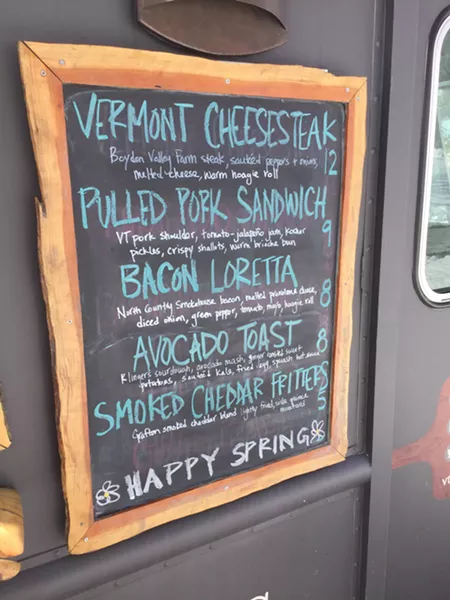 VERMONT CHEESESTEAK
Boyden Valley Farm steak, sautéed peppers + onions,
melted cheese, warm hoagie roll
12
PULLED PORK SANDWICH
VT pork shoulder, tomato-jalapeño jam, kosher
pickles, crispy shallots, warm brioche bun
9
BACON LORETTA
North Country Smokehouse bacon, melted provolone cheese,
diced onion, green pepper, tomato, mayo, hoagie roll
8
AVOCADO TOAST
8
Klingers sourdough, avocado mash, ginger roasted sweet
potatoes, sautéed kale, fried egg, hot sauce
SMOKED CHEDDAR FRITTERS
5
Grafton smoked cheddar blend lightly fried, mustard
HAPPY SPRING